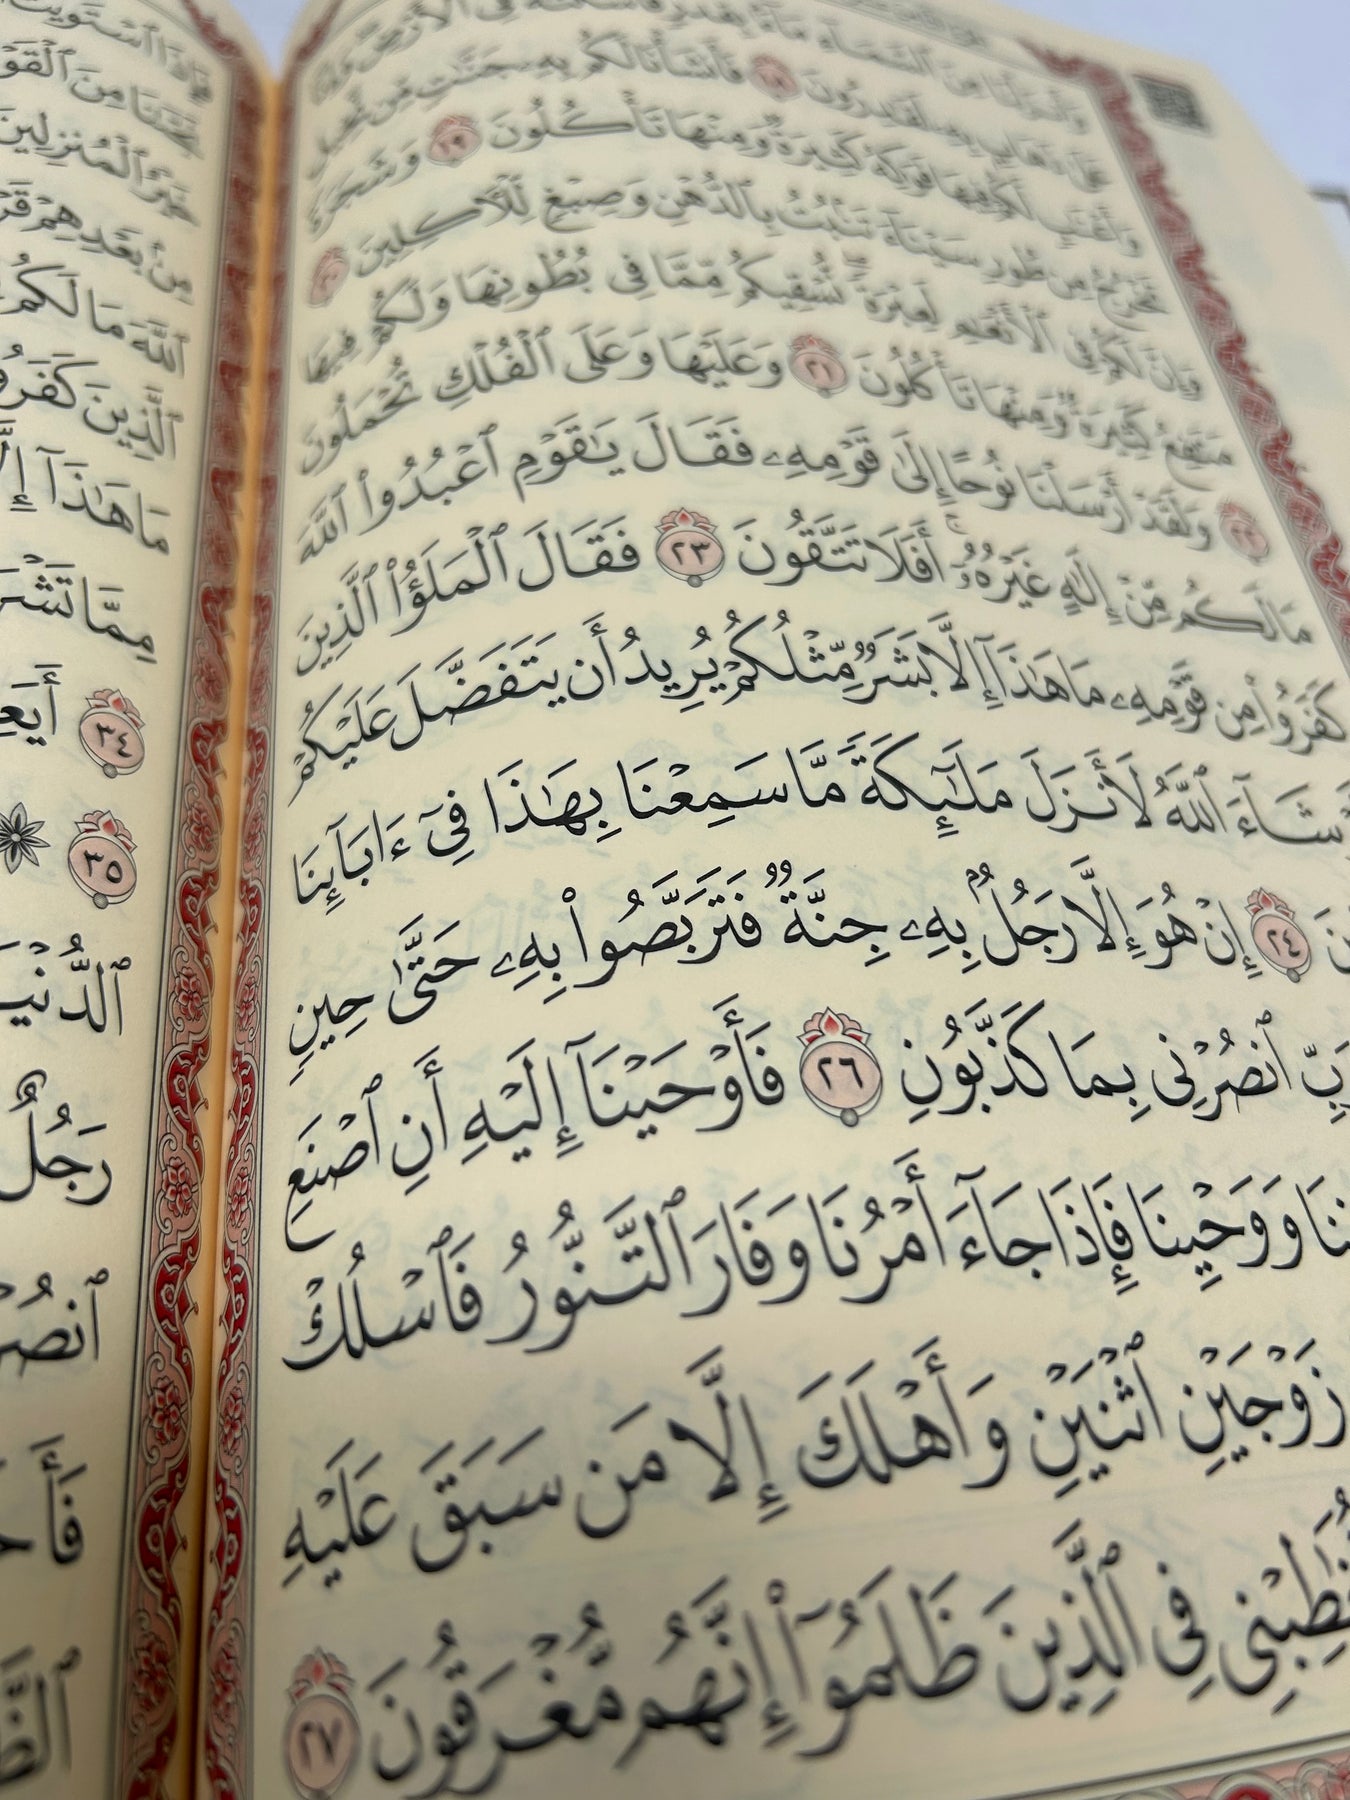 وَأَنزَلْنَا مِنَ ٱلسَّمَآءِ مَآءًۢ بِقَدَرٍ فَأَسْكَنَّٰهُ فِى ٱلْأَرْضِ وَإِنَّا
عَلَىٰ ذَهَابٍۭ بِهِۦ لَقَٰدِرُونَ ١٨ فَأَنشَأْنَا لَكُم بِهِۦ جَنَّٰتٍ مِّن نَّخِيلٍ
وَأَعْنَٰبٍ لَّكُمْ فِيهَا فَوَٰكِهُ كَثِيرَةٌ وَمِنْهَا تَأْكُلُونَ ١٩ وَشَجَرَةً
تَخْرُجُ مِن طُورِ سَيْنَآءَ تَنۢبُتُ بِٱلدُّهْنِ وَصِبْغٍ لِّلْءَاكِلِينَ ٢٠
وَإِنَّ لَكُمْ فِى ٱلْأَنْعَٰمِ لَعِبْرَةً نُّسْقِيكُم مِّمَّا فِى بُطُونِهَا وَلَكُمْ فِيهَا
مَنَٰفِعُ كَثِيرَةٌ وَمِنْهَا تَأْكُلُونَ ٢١ وَعَلَيْهَا وَعَلَى ٱلْفُلْكِ تُحْمَلُونَ
٢٢ وَلَقَدْ أَرْسَلْنَا نُوحًا إِلَىٰ قَوْمِهِۦ فَقَالَ يَٰقَوْمِ ٱعْبُدُوا۟ ٱللَّهَ
مَا لَكُم مِّنْ إِلَٰهٍ غَيْرُهُۥٓ أَفَلَا تَتَّقُونَ ٢٣ فَقَالَ ٱلْمَلَؤُا۟ ٱلَّذِينَ
كَفَرُوا۟ مِن قَوْمِهِۦ مَا هَٰذَآ إِلَّا بَشَرٌ مِّثْلُكُمْ يُرِيدُ أَن يَتَفَضَّلَ عَلَيْكُمْ
شَآءَ ٱللَّهُ لَأَنزَلَ مَلَٰٓئِكَةً مَّا سَمِعْنَا بِهَٰذَا فِىٓ ءَابَآئِنَا
٢٤ إِنْ هُوَ إِلَّا رَجُلٌۢ بِهِۦ جِنَّةٌ فَتَرَبَّصُوا۟ بِهِۦ حَتَّىٰ حِينٍ
رَبِّ ٱنصُرْنِى بِمَا كَذَّبُونِ ٢٦ فَأَوْحَيْنَآ إِلَيْهِ أَنِ ٱصْنَعِ
وَوَحْيِنَا فَإِذَا جَآءَ أَمْرُنَا وَفَارَ ٱلتَّنُّورُ فَٱسْلُكْ
زَوْجَيْنِ ٱثْنَيْنِ وَأَهْلَكَ إِلَّا مَن سَبَقَ عَلَيْهِ
فِى ٱلَّذِينَ ظَلَمُوٓا۟ إِنَّهُم مُّغْرَقُونَ ٢٧
فَإِذَا ٱسْتَوَيْتَ
نَجَّىٰنَا مِنَ ٱلْقَوْمِ
خَيْرُ ٱلْمُنزِلِينَ
مِنۢ بَعْدِهِمْ
ٱللَّهَ مَا لَكُم
ٱلَّذِينَ كَفَرُوا۟
مَا هَٰذَآ
مِمَّا
٣٤
٣٥
ٱلدُّنْيَا
رَجُلٌ